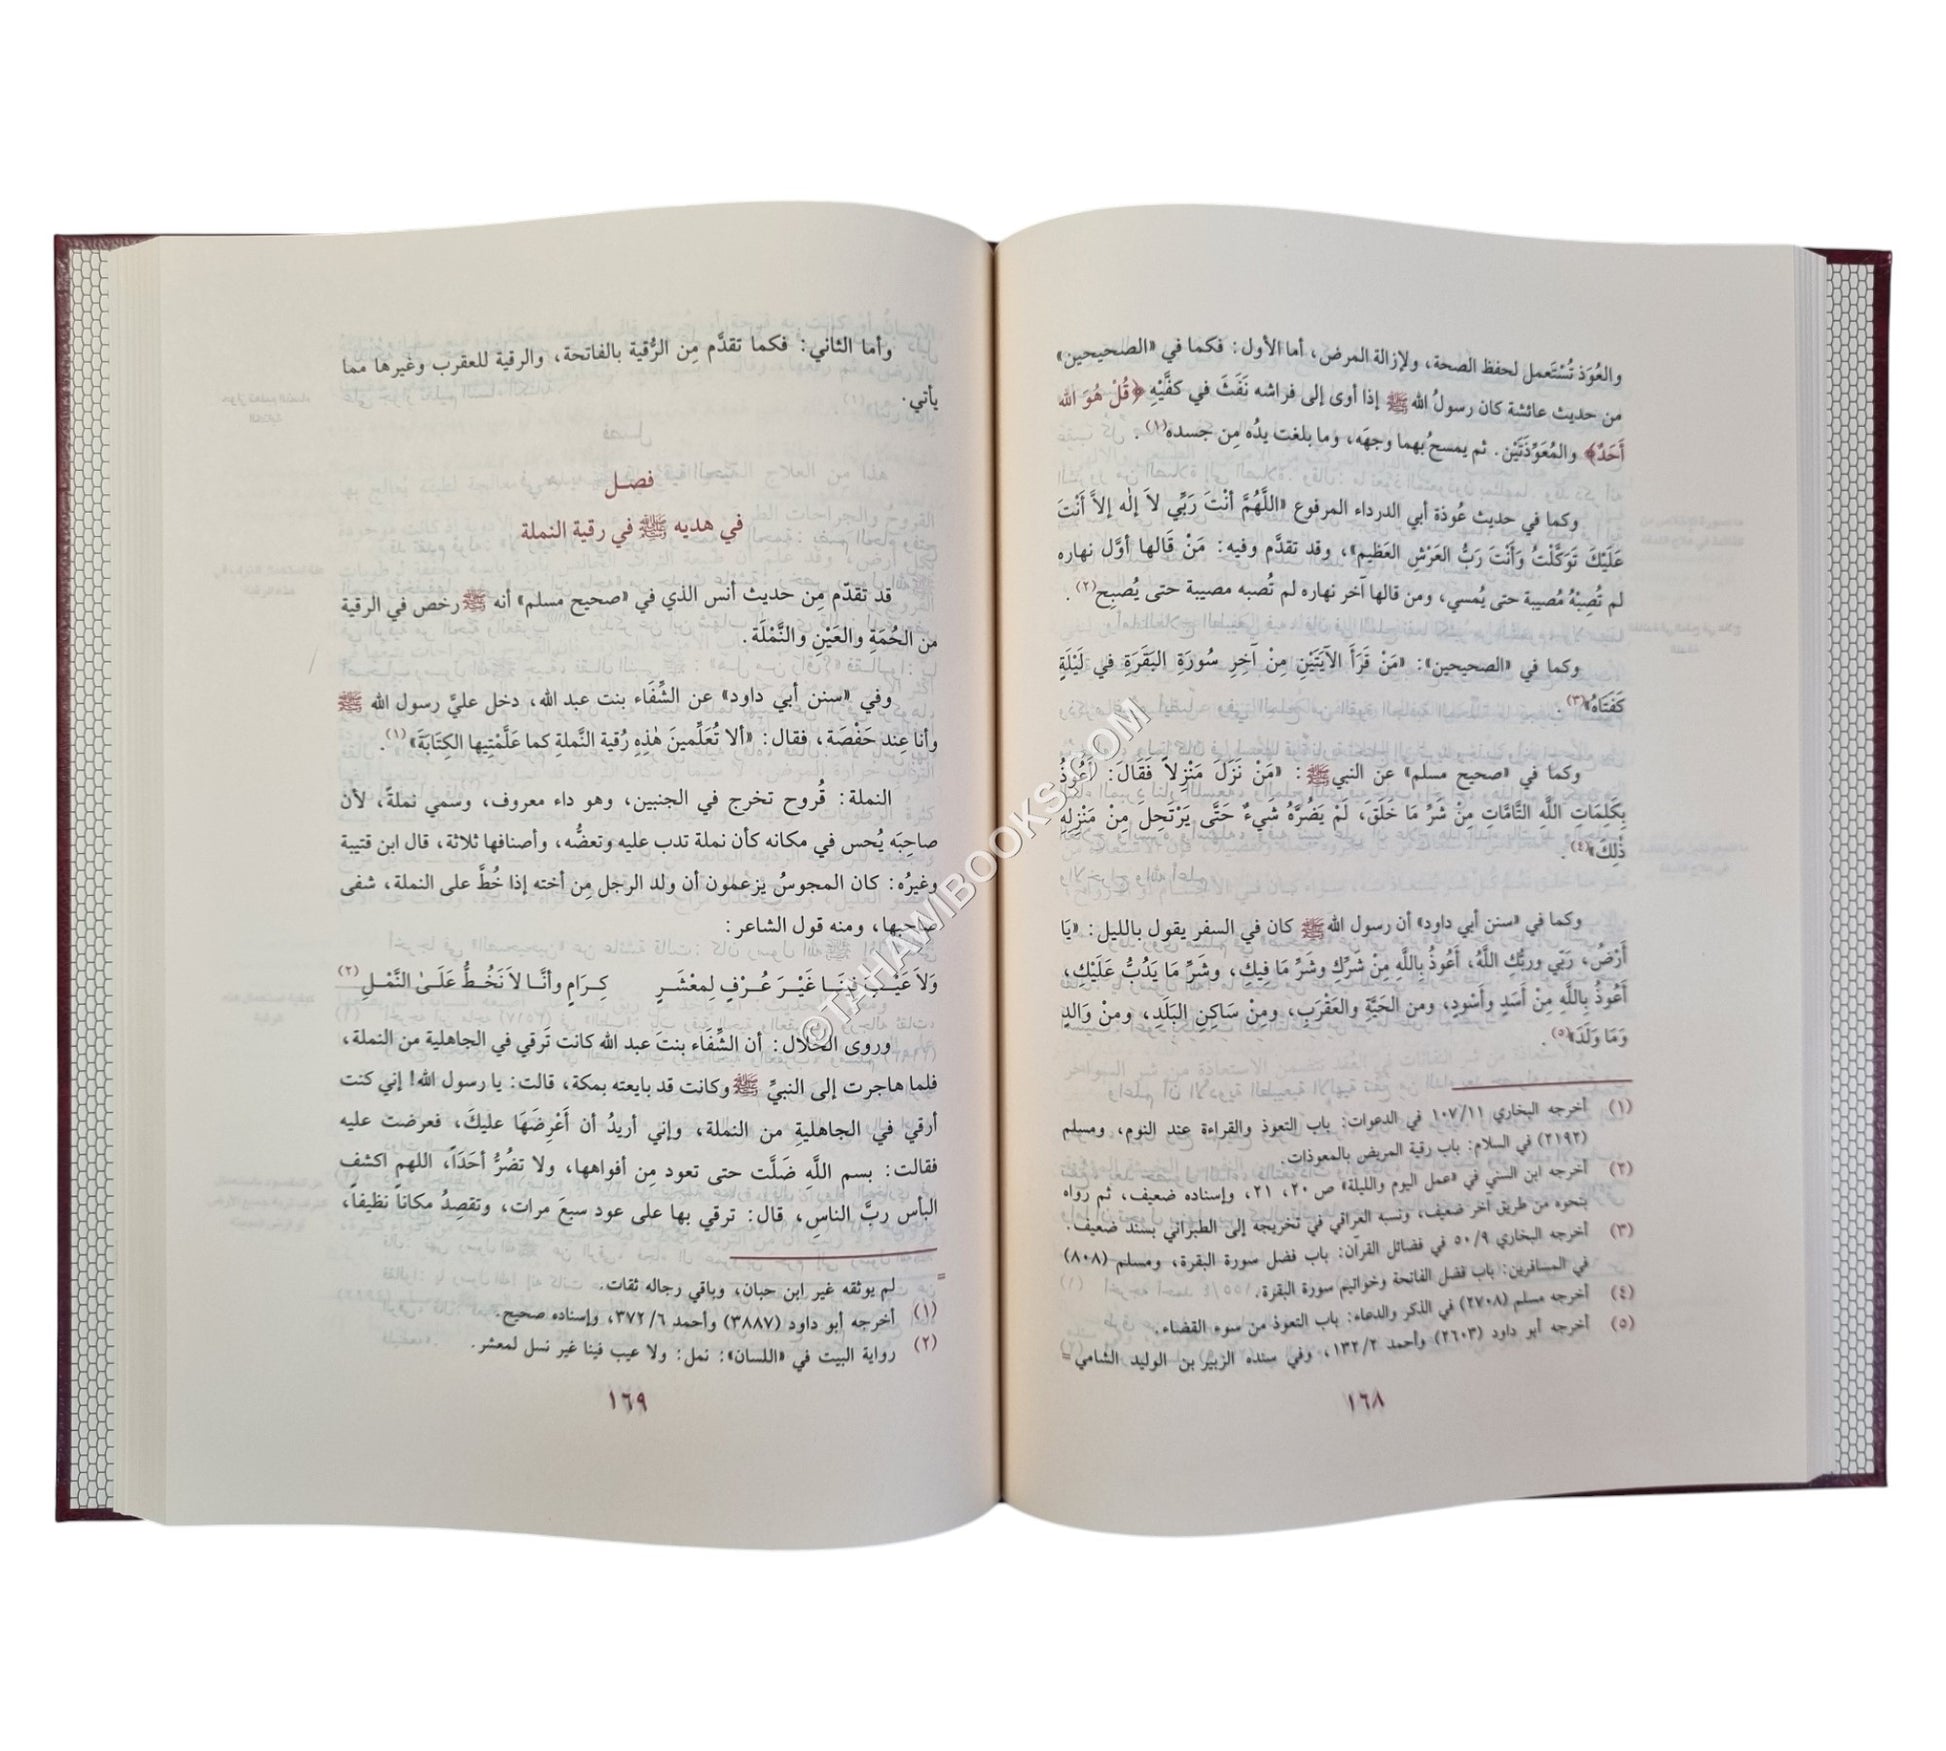 والعُوَذ تُسْتَعمل لحفظ الصحة، ولإزالة المرض، أما الأول: فكما في «الصحيحين»
من حديث عائشة كان رسولُ الله ﷺ إذا أوى إلى فراشه نَفَثَ في كفَّيْهِ ﴿قُلْ هُوَ الله
أَحَدٌ﴾ والمُعَوِّذَتَيْن. ثم يمسحُ بهما وجهَه، وما بلغت يدُه مِن جسده(١).
وكما في حديث عُوذة أبي الدرداء المرفوع «اللَّهُمَّ أنْتَ رَبِّي لاَ إلٰه إلاَّ أَنْتَ
عَلَيْكَ تَوَكَّلْتُ وَأَنْتَ رَبُّ العَرْشِ العَظِيم»، وقد تقدَّم وفيه: مَنْ قَالها أوَّل نهاره
لم تُصِبْهُ مُصيبة حتى يُمسي، ومن قالها آخر نهاره لم تُصبه مصيبة حتى يُصْبِح(٢).
وكما في «الصحيحين»: «مَنْ قَرَأَ الآيَتَيْنِ مِنْ آخِرِ سُورَةِ البَقَرَةِ في لَيْلَةٍ
كَفَتَاهُ»(٣).
وكما في «صحيح مسلم» عن النبي ﷺ: «مَنْ نَزَلَ مَنْزِلاً فَقَالَ: أَعُوذُ
بِكَلِمَاتِ اللَّهِ التَّامَّاتِ مِنْ شَرِّ مَا خَلَقَ، لَمْ يَضُرَّهُ شَيءٌ حَتَّى يَرْتَحِلَ مِنْ مَنْزِلِهِ
ذٰلِكَ»(٤).
وكما في «سنن أبي داود» أن رسول الله ﷺ كان في السفر يقول بالليل: «يَا
أَرْضُ، رَبِّي وربُّكِ اللَّهُ، أَعُوذُ بِاللَّهِ مِنْ شَرِّكِ وشَرِّ مَا فِيكِ، وشَرِّ مَا يَدُبُّ عَلَيْكِ،
أَعُوذُ بِاللَّهِ مِنْ أَسَدٍ وأَسْودٍ، ومن الحَيَّةِ والعَقْرَبِ، ومِنْ سَاكِنِ البَلَدِ، ومنْ وَالدٍ
وَمَا وَلَدَ»(٥).
(١) أخرجه البخاري ١٠٧/١١ في الدعوات: باب التعوذ والقراءة عند النوم، ومسلم
(٢١٩٢) في السلام: باب رقية المريض بالمعوذات.
(٢) أخرجه ابن السني في «عمل اليوم والليلة» ص ٢٠، ٢١، وإسناده ضعيف، ثم رواه
بنحوه من طريق آخر ضعيف، ونسبه العراقي في تخريجه إلى الطبراني بسند ضعيف.
(٣) أخرجه البخاري ٥٠/٩ في فضائل القرآن: باب فضل سورة البقرة، ومسلم (٨٠٨)
في المسافرين: باب فضل الفاتحة وخواتيم سورة البقرة.
(٤) أخرجه مسلم (٢٧٠٨) في الذكر والدعاء: باب التعوذ من سوء القضاء.
(٥) أخرجه أبو داود (٢٦٠٣) وأحمد ١٣٢/٢، وفي سنده الزبير بن الوليد الشامي =
١٦٨
وأما الثاني: فكما تقدَّم مِن الرُّقية بالفاتحة، والرقية للعقرب وغيرها مما
يأتي.
فصل
في هديه ﷺ في رقية النملة
قد تقدّم مِن حديث أنس الذي في «صحيح مسلم» أنه ﷺ رخص في الرقية
من الحُمَةِ والعَيْنِ والنَّمْلَة.
وفي «سنن أبي داود» عن الشِّفَاء بنت عبد الله، دخل عليَّ رسول الله ﷺ
وأنا عِند حَفْصَة، فقال: «ألا تُعَلِّمينَ هٰذِهِ رُقية النَّملةِ كما عَلَّمْتِيها الكِتَابَةَ»(١).
النملة: قُروح تخرج في الجنبين، وهو داء معروف، وسمي نملةً، لأن
صاحِبَه يُحس في مكانه كأن نملة تدب عليه وتعضُّه، وأصنافها ثلاثة، قال ابن قتيبة
وغيرُه: كان المجوسُ يزعمون أن ولد الرجل مِن أخته إذا خُطَّ على النملة، شفى
صاحبها، ومنه قول الشاعر:
وَلاَ عَيْـبَ فِينَـا غَيْـرَ عُـرْفٍ لِمعْشَـرٍ كِـرَامٍ وأنَّـا لاَ نَخُـطُّ عَلَـىٰ النَّمْـلِ(٢)
وروى الخلال: أن الشِّفَاء بنتَ عبد الله كانت تَرقي في الجاهلية من النملة،
فلما هاجرت إلى النبيِّ ﷺ وكانت قد بايعته بمكة، قالت: يا رسول الله! إني كنت
أرقي في الجاهليةِ من النملة، وإني أريدُ أن أَعْرِضَهَا عليكَ، فعرضت عليه
فقالت: بسم اللَّه ضَلَّت حتى تعود مِن أفواهها، ولا تضُرُّ أحَدَاً، اللهم اكشفِ
البأس ربَّ الناسِ، قال: ترقي بها على عود سبعَ مرات، وتقصِدُ مكاناً نظيفاً،
= لم يوثقه غير ابن حبان، وباقي رجاله ثقات.
(١) أخرجه أبو داود (٣٨٨٧) وأحمد ٣٧٢/٦، وإسناده صحيح.
(٢) رواية البيت في «اللسان»: نمل: ولا عيب فينا غير نسل لمعشر.
١٦٩
©TAHAWIBOOKS.COM